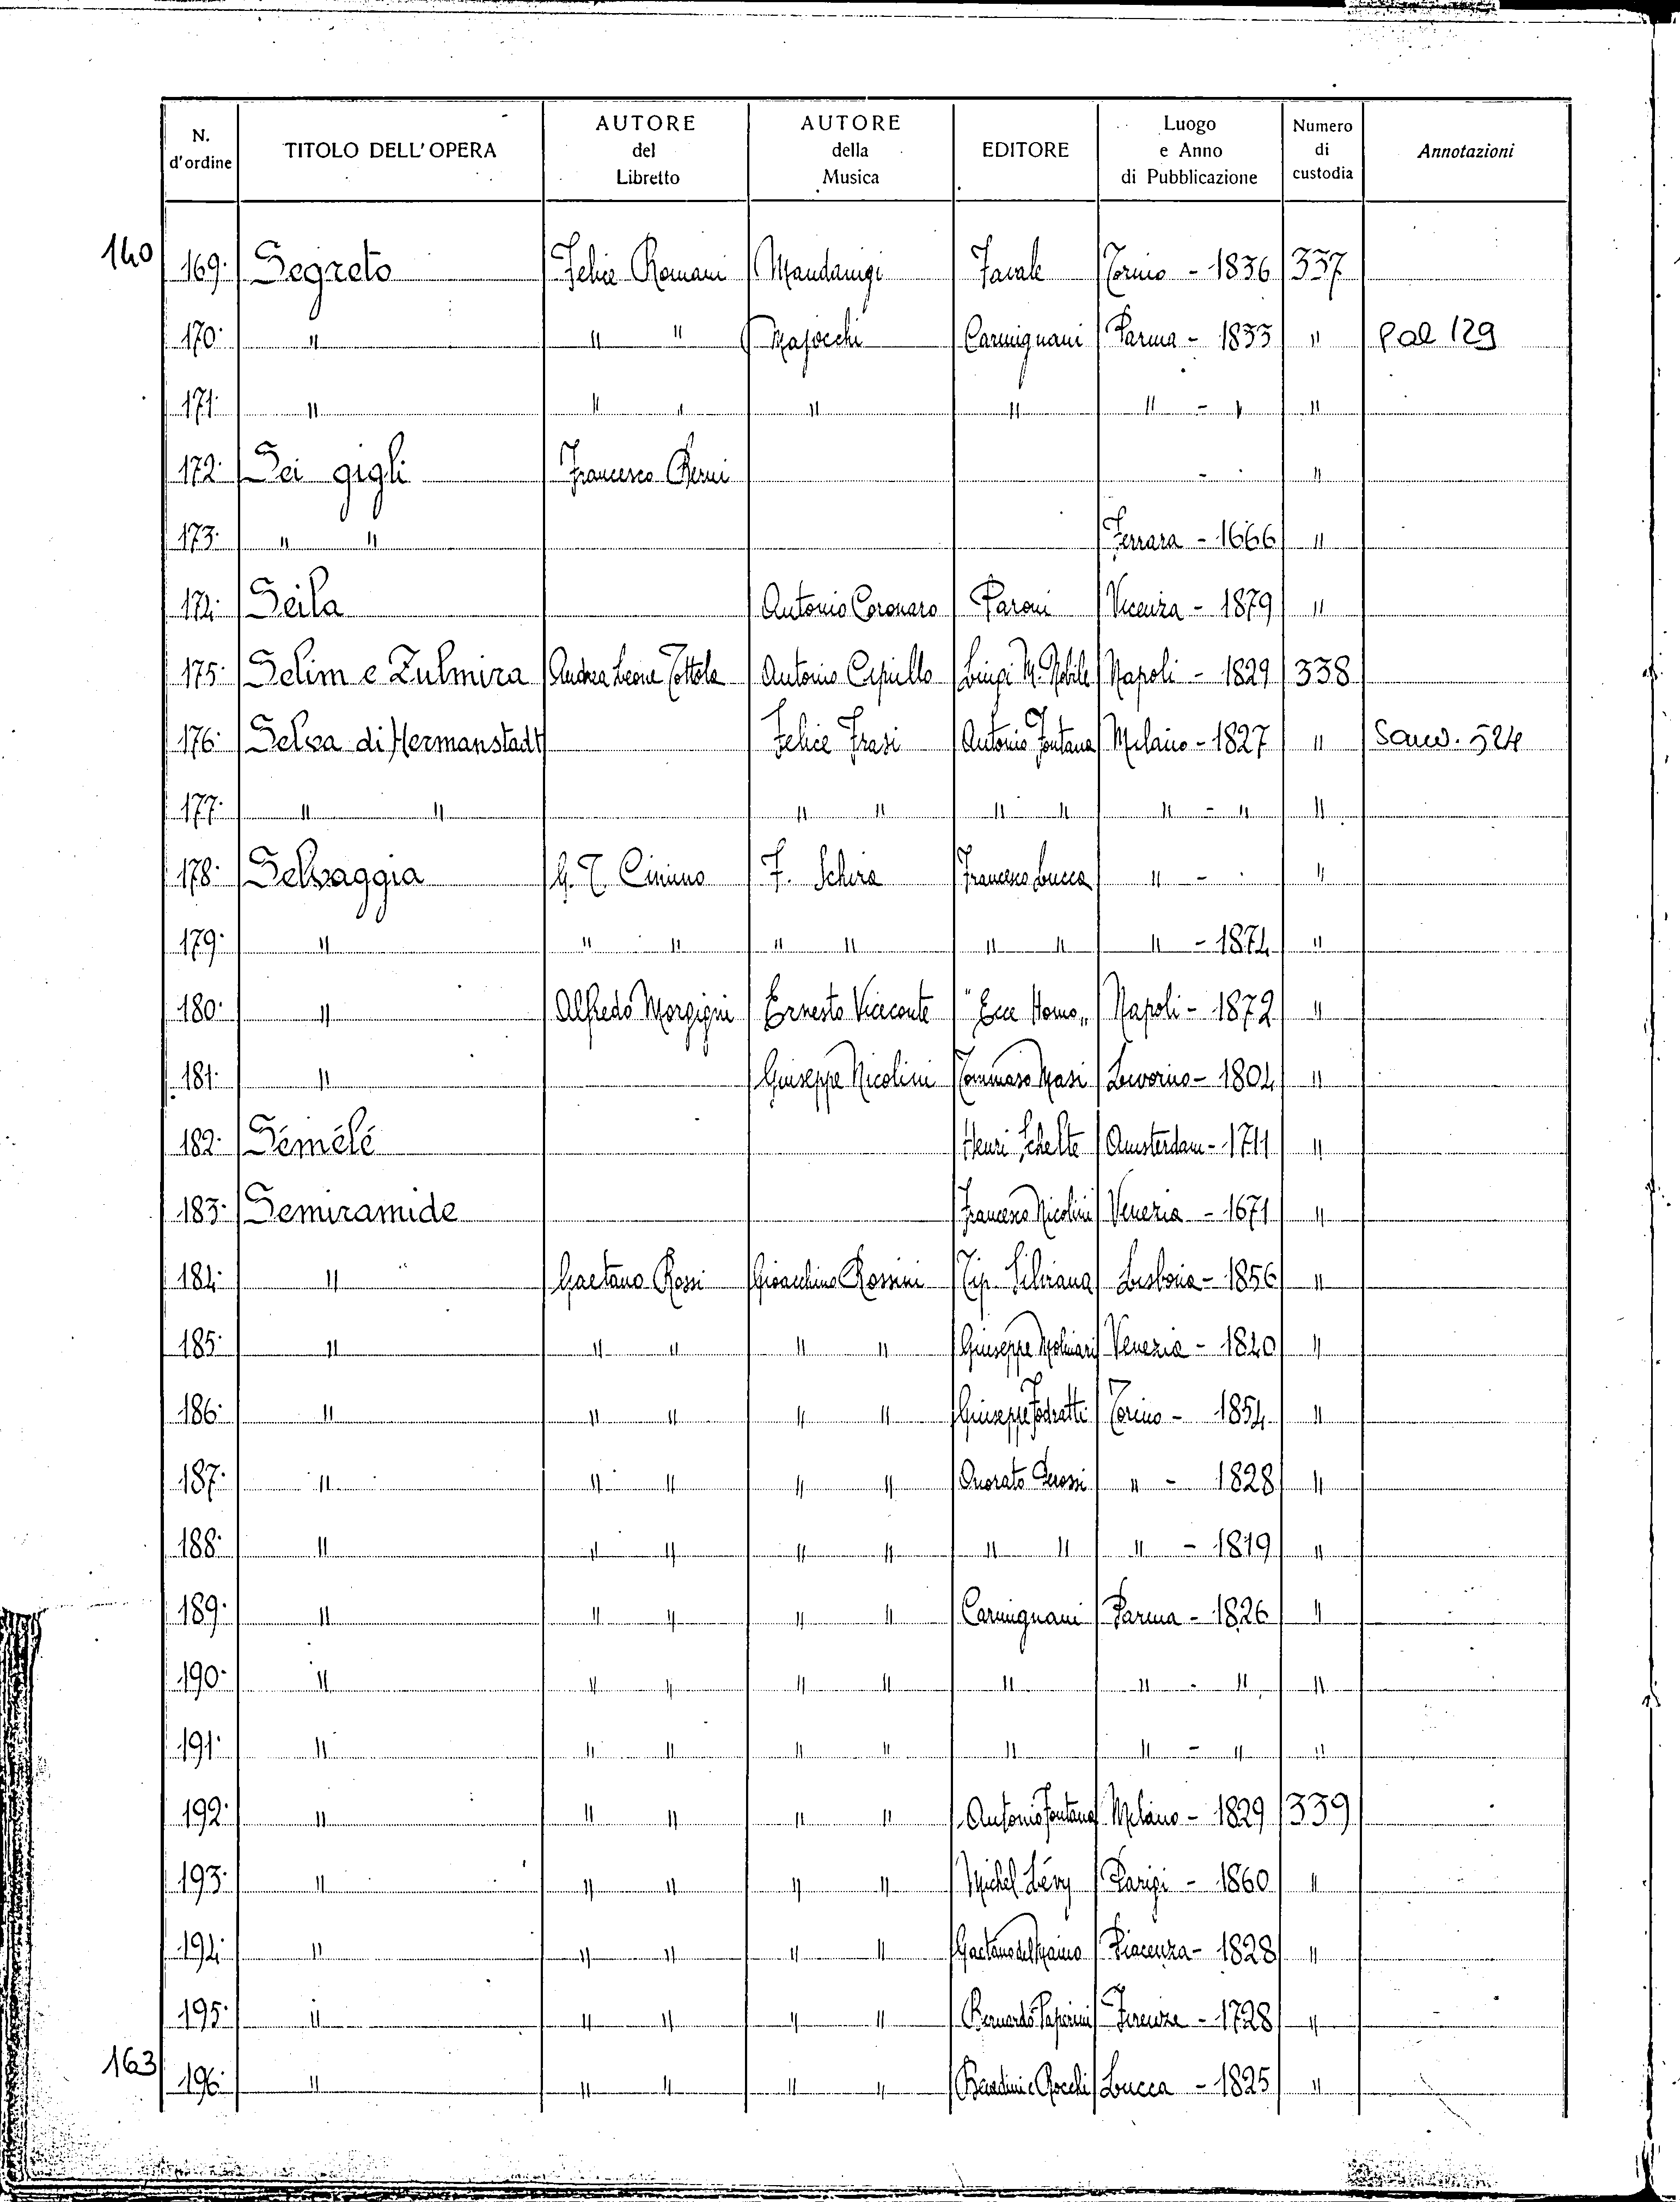 N. d'ordine | TITOLO DELL'OPERA | AUTORE del Libretto | AUTORE della Musica | EDITORE | Luogo e Anno di Pubblicazione | Numero di custodia | Annotazioni
140
169. Segreto | Felice Romani | Mandanigi | Favale | Torino - 1836 | 337
170. " | " " | Majocchi | Carmignani | Parma - 1833 | " | Pal 129
171. " | " " | " | " | " - " | "
172. Sei gigli | Francesco Berni | | | - | "
173. " " | | | | Ferrara - 1666 | "
174. Seila | | Antonio Coronaro | Paroni | Vicenza - 1879 | "
175. Selim e Zulmira | Andrea Leone Tottola | Antonio | Luigi M. Nobile | Napoli - 1829 | 338
176. Selva di Hermanstadt | | Felice Frasi | Antonio Fontana | Milano - 1827 | " | 524
177. " " | | " " | " " | " - " | "
178. Selvaggia | G. T. Cimino | F. Schira | Francesco Lucca | " - | "
179. " | " " | " " | " " | " - 1874 | "
180. " | Alfredo Morgigni | Ernesto Viceconte | "Ecce Homo" | Napoli - 1872 | "
181. " | | Giuseppe Nicolini | Tommaso Masi | Livorno - 1804 | "
182. Sémélé | | | Henri Schelte | Amsterdam - 1711 | "
183. Semiramide | | | Francesco Nicolini | Venezia - 1671 | "
184. " | Gaetano Rossi | Gioacchino Rossini | Tip. Silviana | Lisbona - 1856 | "
185. " | " " | " " | Giuseppe Molinari | Venezia - 1840 | "
186. " | " " | " " | Giuseppe Fodratti | Torino - 1854 | "
187. " | " " | " " | Onorato Derossi | " - 1828 | "
188. " | " " | " " | " " | " - 1819 | "
189. " | " " | " " | Carmignani | Parma - 1826 | "
190. " | " " | " " | " | " - " | "
191. " | " " | " " | " | " - " | "
192. " | " " | " " | Antonio Fontana | Milano - 1829 | 339
193. " | " " | " " | Michel Lévy | Parigi - 1860 | "
194. " | " " | " " | Gaetano del Maino | Piacenza - 1828 | "
195. " | " " | " " | Bernardo Paperini | Firenze - 1728 | "
163
196. " | " " | " " | Benedini e Rocchi | Lucca - 1825 | "